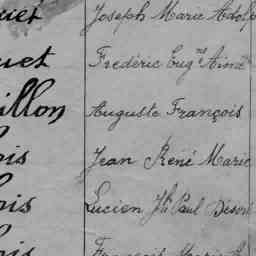 uet Joseph Marie Adolp
uet Frédéric Eug.ne Aimé
illon Auguste François
ois Jean René Marie
ois Lucien Jh Paul Désiré
ois François Marie